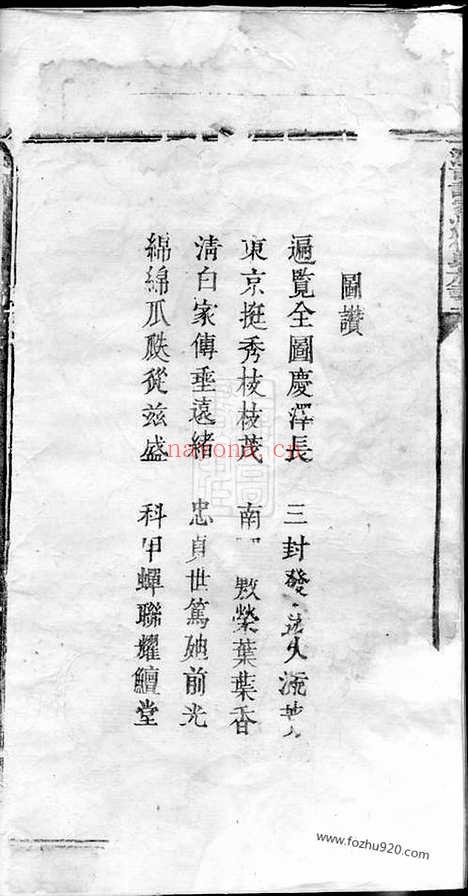 圖讚
遍覽全圖慶澤長　三封發
東京挺秀枝枝茂　南　敷榮葉葉香
淸白家傳垂遠緒　忠貞世篤廸前光
綿綿瓜瓞從兹盛　科甲蟬聯耀鱣堂
nayona.cn
www.fozhu920.com